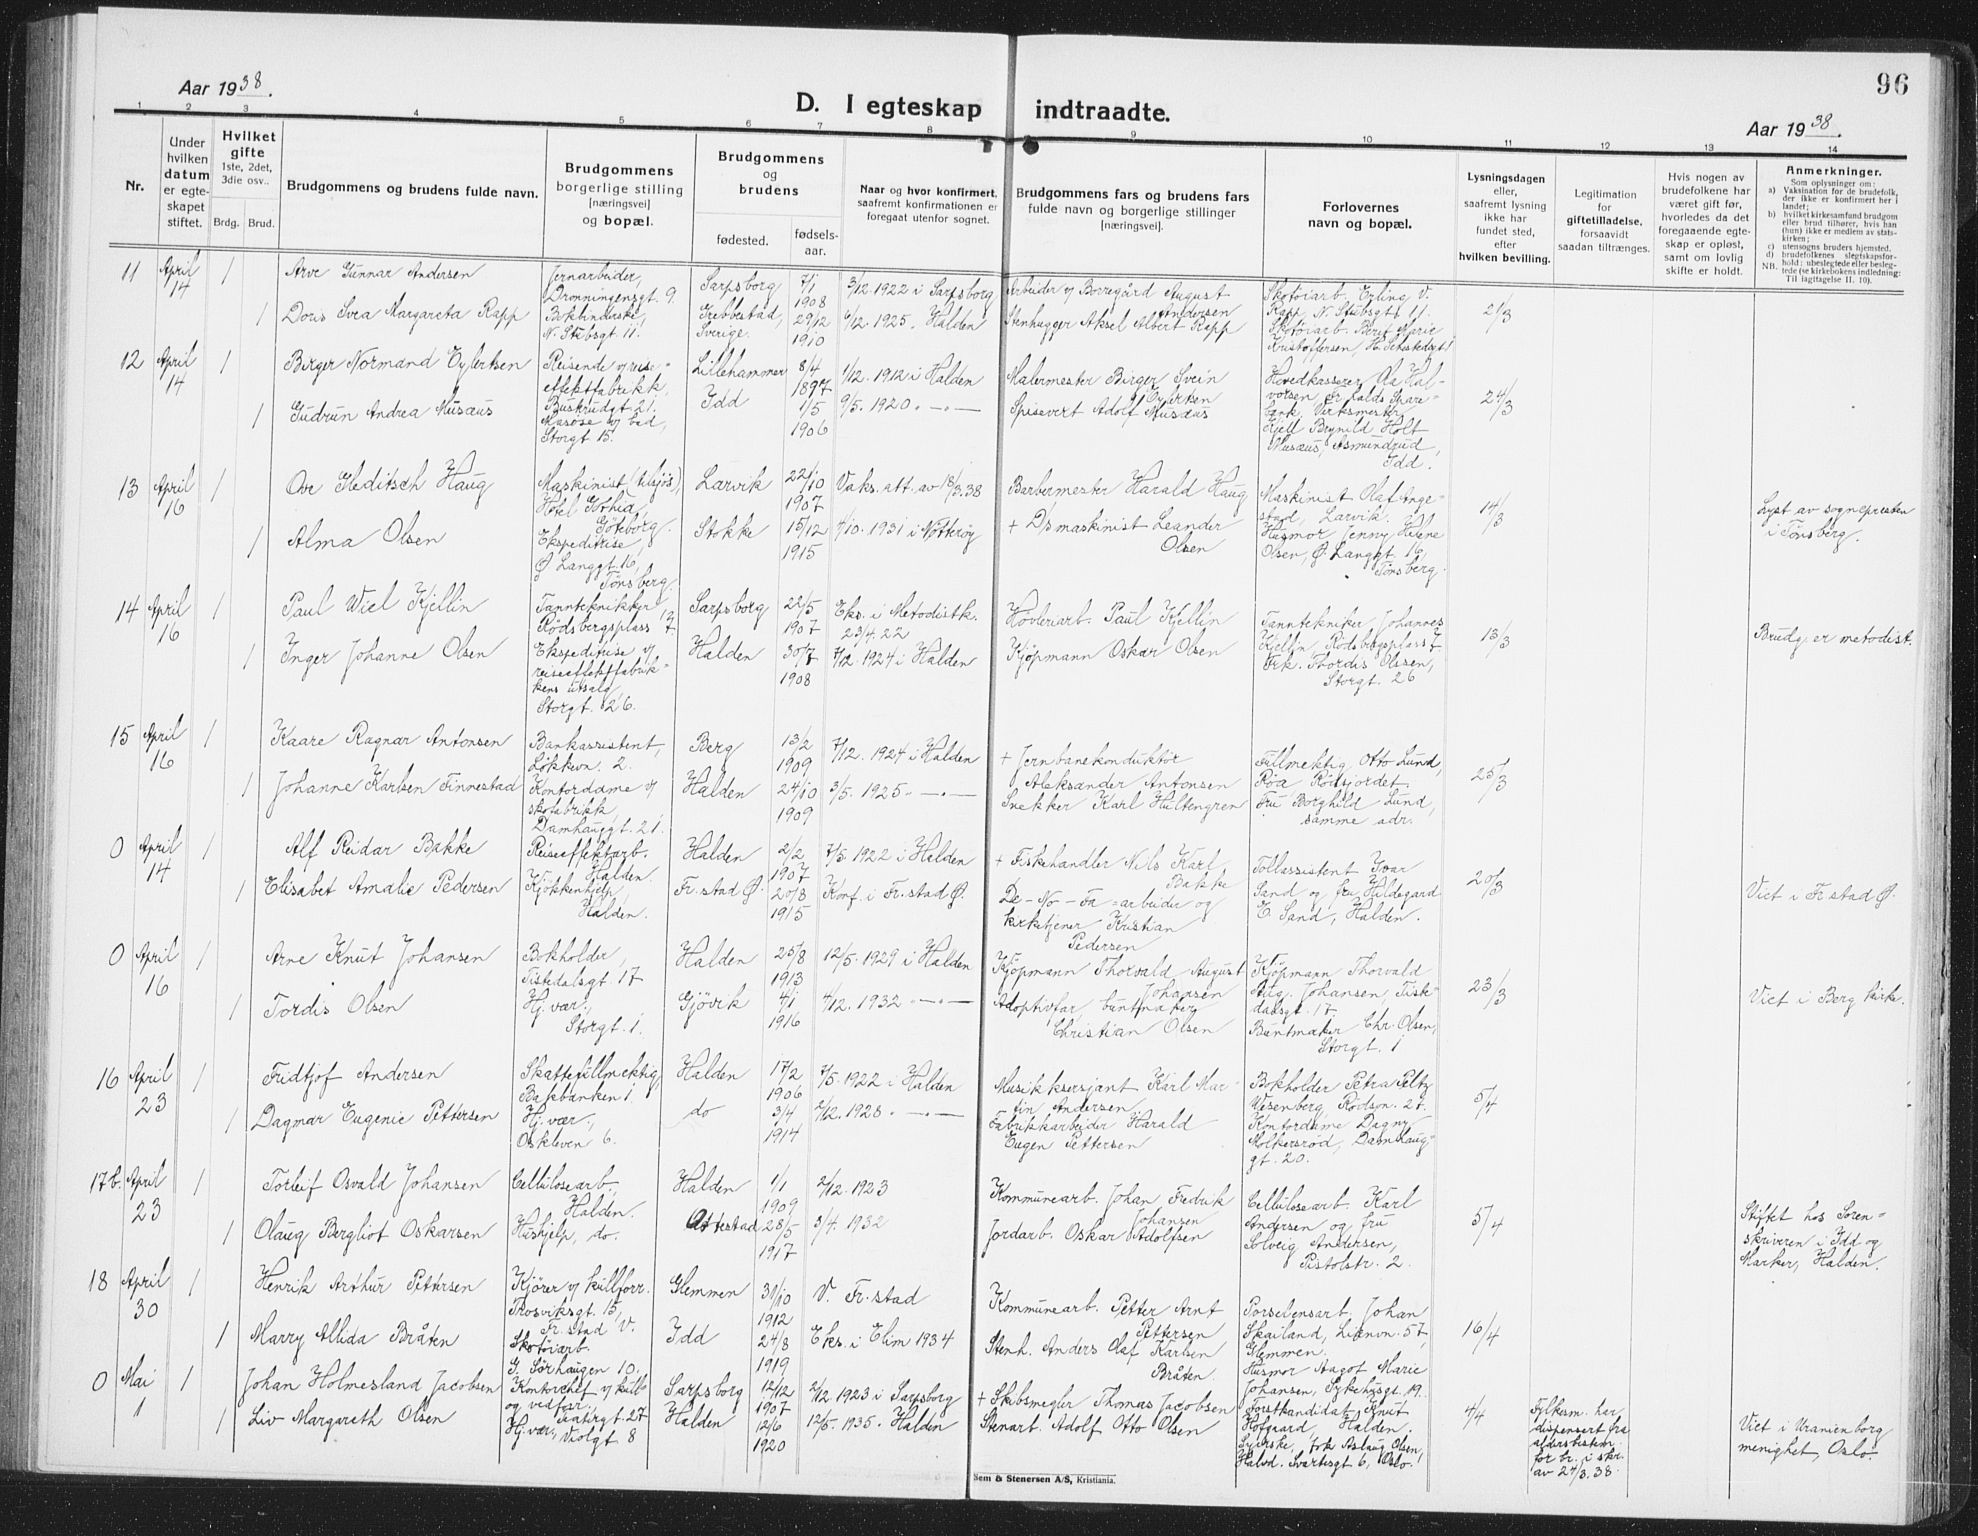 96
Aar 1938.
D. I egteskap indtraadte.
Aar 1938.
1 2 3 4 5 6 7 8 9 10 11 12 13 14
Nr.
Under hvilken datum er egteskapet stiftet.
Hvilket gifte 1ste, 2det, 3die osv..
Brdg. Brud.
Brudgommens og brudens fulde navn.
Brudgommens borgerlige stilling [næringsvei] og bopæl.
Brudgommens og brudens
fødested. fødselsaar.
Naar og hvor konfirmert, saafremt konfirmationen er foregaat utenfor sognet.
Brudgommens fars og brudens fars fulde navn og borgerlige stillinger [næringsvei].
Forlovernes navn og bopæl.
Lysningsdagen eller, saafremt lysning ikke har fundet sted, efter hvilken bevilling.
Legitimation for giftetilladelse, forsaavidt saadan tiltrænges.
Hvis nogen av brudefolkene har været gift før, hvorledes da det foregaaende egteskap er opløst, samt om lovlig skifte er holdt.
Anmerkninger.
Som oplysninger om:
a) Vaksination for de brudefolk, der ikke er konfirmert her i landet;
b) hvilket kirkesamfund brudgom eller brud tilhører, hvis han (hun) ikke er medlem av statskirken;
c) utensogns bruders hjemsted.
d) brudefolkenes slegtskapsforhold: ubeslegtede eller beslegtede (se kirkebokens indledning: NB. Til lagttagelse II. 10).
11 April 14 1 Arve Gunnar Andersen Jernarbeider, Dronningensgt. 9. Sarpsborg 7/1 1908 3/12. 1922 i Sarpsborg Arbeider v/ Borregård August Andersen Skotöiarb. Erling V. Rapp, N. Stubsgt. 11. 2/3
1 Doris Svea Margareta Rapp Bokbinderske, N. Stubsgt. 11. Grebbestad, Sverige. 29/12 1910 6/12. 1925. Halden Stenhugger Aksel Albert Rapp Skotöiarb. Berit Marie Kristoffersen,
12 April 14 1 Birger Normand Eylertsen Reisende v/ reiseeffektfabrikk, Buskrudgt. 21. Lillehammer 8/4 1897 1/12. 1912 i Halden Malermester Birger Svein Eylertsen Hovedkasserer Ola Halvorsen, Fr.halds Sparebank, Verksmester 24/3
1 Gudrun Andrea Musæus Masöse v/ bad, Storgt. 15. Idd 1/5 1906 9/5. 1920. —"— Spisevert Adolf Musæus Kjell Brynild Holt Musæus, Asmundrud, Idd.
13 April 16 1 Ove Heditsch Haug Maskinist (tilsjös), Hotel Göthia, Göteborg. Larvik 22/10 1907 Vaks. att. av 18/3.38 Barbermester Harald Haug Maskinist Olaf Angestad, Larvik. 14/3 Lyst av sognepresten i Tönsberg.
1 Alma Olsen Ekspeditrise, Ø. Langgt. 16, Tönsberg. Stokke 15/12 1915 4/10. 1931 i Nötteröy + D/s maskinist Leander Olsen Husmor Jenny Helene Olsen, Ø. Langgt. 16, Tönsberg.
14 April 16 1 Paul Wiel Kjellin Tanntekniker, Rödsbergsplass 7 Sarpsborg 22/5 1907 Eks. i Metodistk. 23/4. 22 Hövleriarb. Paul Kjellin Tanntekniker Johannes Kjellin, Rödsbergsplass 7 13/3 Brudg. er metodist.
1 Inger Johanne Olsen Ekspeditrise v/ reiseeffektfabrikkens utsalg, Storgt. 26. Halden 30/7 1908 7/12. 1924 i Halden Kjöpmann Oskar Olsen Frk. Thordis Olssen, Storgt. 26
15 April 16 1 Kaare Ragnar Antonsen Bankassistent, Lökkevn. 2. Berg 13/2 1909 7/12. 1924 i Halden + Jernbanekonduktör Aleksander Antonsen Fullmektig Otto Lund, Röa, Rödsjordet 25/3
1 Johanne Karlsen Finnestad Kontordame v/ skofabrikk, Damhauggt. 21. Halden 24/10 1909 3/5. 1925. —"— Snekker Karl Hultengren Fru Borghild Lund, samme adr.
0 April 14 1 Alf Reidar Bakke Reiseeffektarb. Halden. Halden 2/2 1907 7/5. 1922 i Halden + Fiskehandler Nils Karl Bakke Tollassistent Ivar Sand og fru Hildegard E. Sand, Halden. 20/3 Viet i Fr.stad Ø.
1 Elisabet Amalie Pedersen Kjökkenhjelp, Halden. Fr.stad Ø. 20/8 1915 Konf. i Fr.stad Ø. De-No-Fa-arbeider og kirketjener Kristian Pedersen
0 April 16 1 Arne Knut Johansen Bokholder, Tistedalsgt. 17 Halden 25/8 1913 12/5. 1929 i Halden Kjöpmann Thorvald August Johansen Kjöpmann Thorvald Aug. Johansen, Tistedalsgt. 17 23/3 Viet i Berg kirke.
1 Tordis Olsen Hj.vær., Storgt. 1. Gjövik 4/1 1916 4/12. 1932 —"— Adoptivfar, buntmaker Christian Olsen Buntmaker Chr. Olsen, Storgt. 1
16 April 23 1 Fridtjof Andersen Skattefullmektig, Bakbanken 1. Halden 17/2 1906 7/5. 1922 i Halden Musikksersjant Karl Martin Andersen Bokholder Petra Peltz Wesenberg, Rödsvn. 27. 5/4
1 Dagmar Eugenie Pettersen Hj.vær., Oskleven 6. do 3/4 1914 2/12. 1928 —"— Fabrikkarbeider Harald Eugen Pettersen Kontordame Dagny Molkersröd, Damhauggt. 20.
17b. April 23 1 Torleif Osvald Johansen Cellulosearb., Halden. Halden 1/1 1909 2/12. 1923 Kommunearb. Johan Fredrik Johansen Cellulosearb. Karl Andersen og fru Solveig Andersen, Pistolstr. 2. 5/4 Stiftet hos Sorenskriveren i Idd og Marker, Halden.
1 Olaug Bergliot Oskarsen Hushjelp, do. 28/5 1917 3/4. 1932 Jordarb. Oskar Adolfsen
18 April 30 1 Henrik Arthur Pettersen Kjörer v/ kullforr. Trosviksgt. 15, Fr.stad V. Glemmen 31/10 1912 V. Fr.stad Kommunearb. Petter Arnt Pettersen Porselensarb. Johan Skailand, Lienvn. 57, Glemmen. 16/4
1 Marry Allida Bråten Skotöiarb. G. Sörhaugen 10. Idd 24/8 1919 Eks. i Elim 1934 Stenh. Anders Olaf Karlsen Bråten. Husmor Aagot Marie Johansen, Sykehusgt. 19.
0 Mai 1 1 Johan Holmesland Jacobsen Kontorchef v/ kull- og vedfor., Teatergt. 27 Sarpsborg 12/12 1907 2/12 1923 i Sarpsborg + Skibsmegler Thomas Jacobsen Forstkandidat Knut Hofgaard, Halden. 4/4 Fylkesm. har dispensert fra aldersbestem. for br. i skr. av 24/3. 38. Viet i Uranienborg menighet, Oslo.
1 Liv Margareth Olsen Hj.vær., Violgt 8 Halden 12/6 1920 12/5. 1935. Halden Stenarb. Adolf Otto Olsen Syerske, frk Aslaug Olsen, Halvd. Svartesgt 6, Oslo.
Sem & Stenersen A/S, Kristiania.